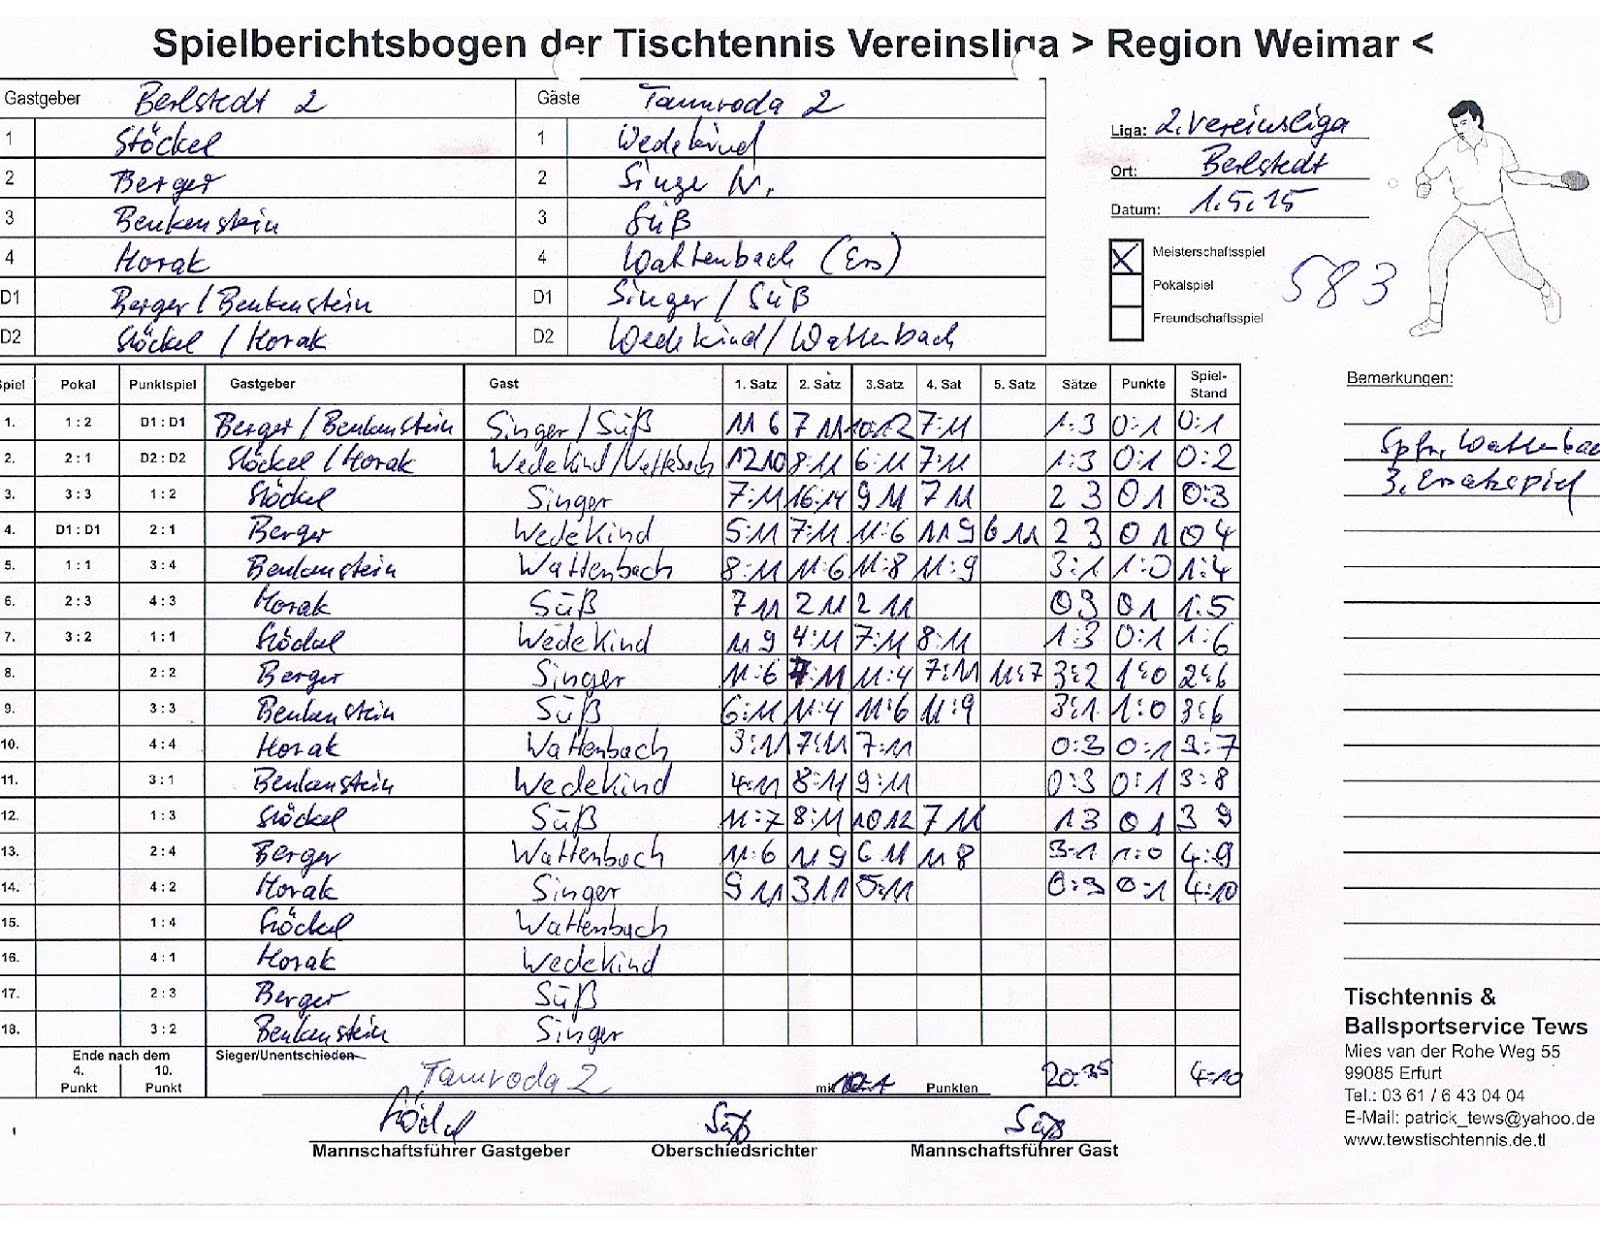 Spielberichtsbogen der Tischtennis Vereinsliga > Region Weimar <
Gastgeber Berlstedt 2 Gäste Tannroda 2
1 Stöckel 1 Wedekind
2 Berger 2 Singe N.
3 Benkenstein 3 Süß
4 Horak 4 Wattenbach (Ers)
D1 Berger / Benkenstein D1 Singer / Süß
D2 Stöckel / Horak D2 Wedekind / Wattenbach
Liga: 2. Vereinsliga
Ort: Berlstedt
Datum: 1.5.15
X Meisterschaftsspiel
Pokalspiel
Freundschaftsspiel
583
Spiel Pokal Punktspiel Gastgeber Gast 1. Satz 2. Satz 3.Satz 4. Sat 5. Satz Sätze Punkte Spiel-Stand
1. 1 : 2 D1 : D1 Berger / Benkenstein Singer / Süß 11 6 7 11 10:12 7:11 1:3 0:1 0:1
2. 2 : 1 D2 : D2 Stöckel / Horak Wedekind / Wattebach 12 10 8:11 6:11 7:11 1:3 0:1 0:2
3. 3 : 3 1 : 2 Stöckel Singer 7:11 16:14 9 11 7 11 2 3 0 1 0:3
4. D1 : D1 2 : 1 Berger Wedekind 5:11 7:11 11:6 11 9 6 11 2 3 0 1 0 4
5. 1 : 1 3 : 4 Benkenstein Wattenbach 8:11 11:6 11:8 11:9 3:1 1:0 1:4
6. 2 : 3 4 : 3 Horak Süß 7 11 2 11 2 11 0 3 0 1 1:5
7. 3 : 2 1 : 1 Stöckel Wedekind 11 9 4:11 7:11 8:11 1:3 0:1 1:6
8. 2 : 2 Berger Singer 11:6 7:11 11:4 7:11 11:7 3:2 1:0 2:6
9. 3 : 3 Benkenstein Süß 6:11 11:4 11:6 11:9 3:1 1:0 3:6
10. 4 : 4 Horak Wattenbach 3:11 7:11 7:11 0:3 0:1 3:7
11. 3 : 1 Benkenstein Wedekind 4:11 8:11 9:11 0:3 0:1 3:8
12. 1 : 3 Stöckel Süß 11:7 8:11 10 12 7 11 1 3 0 1 3 9
13. 2 : 4 Berger Wattenbach 11:6 11 9 6 11 11 8 3-1 1:0 4:9
14. 4 : 2 Horak Singer 9 11 3 11 5:11 0:3 0:1 4:10
15. 1 : 4 Stöckel Wattenbach
16. 4 : 1 Horak Wedekind
17. 2 : 3 Berger Süß
18. 3 : 2 Benkenstein Singer
Ende nach dem
4. Punkt 10. Punkt
Sieger/Unentschieden Tannroda 2 mit Punkten 20:35 4:10
Stöckel Süß Süß
Mannschaftsführer Gastgeber Oberschiedsrichter Mannschaftsführer Gast
Bemerkungen:
Spfr. Wattenbac
3. Ersatzspiel
Tischtennis &
Ballsportservice Tews
Mies van der Rohe Weg 55
99085 Erfurt
Tel.: 03 61 / 6 43 04 04
E-Mail: patrick_tews@yahoo.de
www.tewstischtennis.de.tl